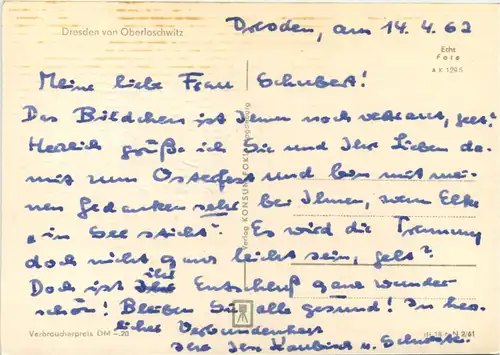 Dresden von Oberloschwitz
Dresden, am 14. 4. 62
Echt
Foto
Meine liebe Frau Schubert!
Das Bildchen ist Ihnen noch vertraut, gelt?
Herzlich grüße ich Sie und Ihre Lieben da-
mit zum Osterfest und bin mit mei-
nen Gedanken sehr bei Ihnen, wenn Elke
"in See sticht". Es wird die Trennung
doch nicht ganz leicht sein, gelt?
Doch ist ihr Entschluß ganz wunder
schön! Bleiben Sie alle gesund! In herz-
licher Verbundenheit
Ihre
und
Verlag KONSUM-FOKO Magdeburg
Verbraucherpreis DM -.20